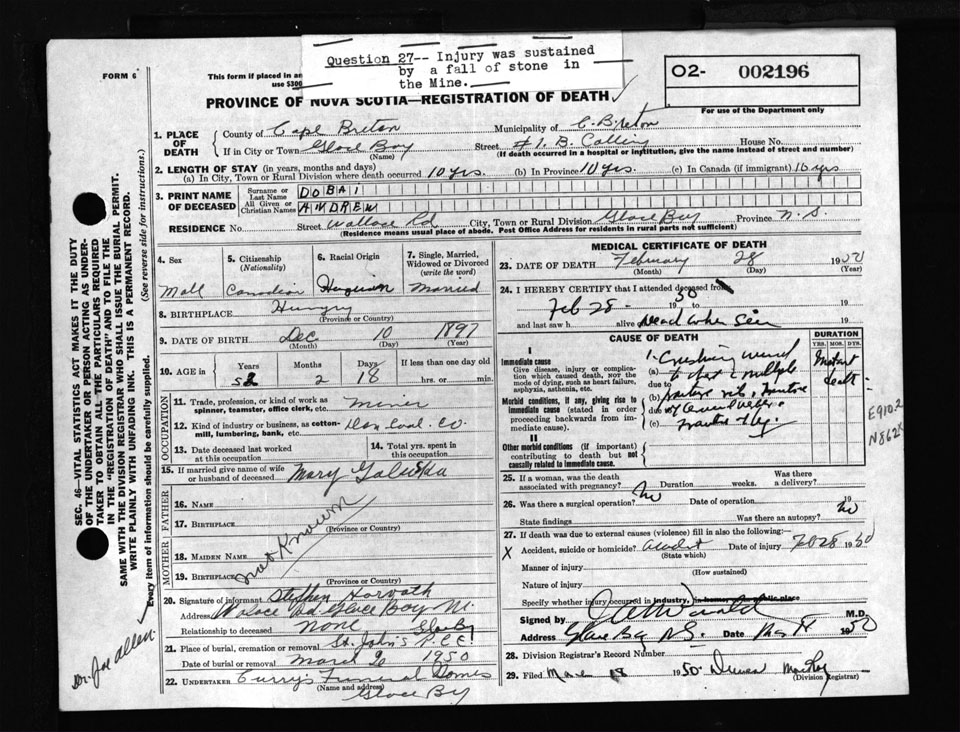 Question 27-- Injury was sustained
by a fall of stone in
the Mine.
FORM 6
This form if placed in an
use $300
O2- 002196
For use of the Department only
PROVINCE OF NOVA SCOTIA—REGISTRATION OF DEATH
1. PLACE OF DEATH { County of Cape Breton Municipality of C. Breton
If in City or Town Glace Bay Street # 1. B. House No.
(Name) (If death occurred in a hospital or institution, give the name instead of street and number)
2. LENGTH OF STAY (in years, months and days)
(a) In City, Town or Rural Division where death occurred 10 yrs. (b) In Province 10 yrs. (c) In Canada (if immigrant) 10 yrs
3. PRINT NAME OF DECEASED { Surname or Last Name DOBAI
All Given or Christian Names ANDREW
RESIDENCE No. Street Wallace Rd City, Town or Rural Division Glace Bay Province N. S.
(Residence means usual place of abode. Post Office Address for residents in rural parts not sufficient)
4. Sex 5. Citizenship (Nationality) 6. Racial Origin 7. Single, Married, Widowed or Divorced (write the word)
Mall Canadian Hungarian Married
8. BIRTHPLACE Hungry
(Province or Country)
9. DATE OF BIRTH Dec 10 1897
(Month) (Day) (Year)
10. AGE in { Years Months Days If less than one day old
52 2 18 hrs. or min.
OCCUPATION
11. Trade, profession, or kind of work as spinner, teamster, office clerk, etc. Miner
12. Kind of industry or business, as cotton-mill, lumbering, bank, etc. Dom Coal. Co.
13. Date deceased last worked at this occupation
14. Total yrs. spent in this occupation
15. If married give name of wife or husband of deceased Mary
FATHER
16. Name
17. Birthplace
(Province or Country)
not Known
MOTHER
18. Maiden Name
19. Birthplace
(Province or Country)
20. Signature of informant Stephen Horvath
Address Wallace Rd. Glace Bay N.
Relationship to deceased None
21. Place of burial, cremation or removal St. John's P.C.E. Glace By
Date of burial or removal March 2 1950
22. UNDERTAKER Curry's Funeral Homes
(Name and address) Glace By
MEDICAL CERTIFICATE OF DEATH
23. DATE OF DEATH February 28 1950
(Month) (Day) (Year)
24. I HEREBY CERTIFY that I attended deceased from
Feb 28- 1950 19
and last saw h alive Dead when seen 19
CAUSE OF DEATH
DURATION
YRS. MOS. DYS.
I
Immediate cause
Give disease, injury or complication which caused death, NOT the mode of dying, such as heart failure, asphyxia, asthenia, etc.
Morbid conditions, if any, giving rise to immediate cause (stated in order proceeding backwards from immediate cause).
II
Other morbid conditions (if important) contributing to death but not causally related to immediate cause.
1. Crushing
(a) to chest & multiple
due to
(b) fracture ribs, fracture
due to
(c) fracture
Instant
death
E910.2
N862X
25. If a woman, was the death associated with pregnancy? Duration weeks. Was there a delivery?
26. Was there a surgical operation? No Date of operation 19
State findings Was there an autopsy? no
27. If death was due to external causes (violence) fill in also the following:—
X Accident, suicide or homicide? Accident Date of injury Feb 28 1950
(State which)
Manner of injury
(How sustained)
Nature of injury
Specify whether injury occurred in industry, in home, or in public place
Signed by M.D.
Address Glace Bay N.S. Date 1950
28. Division Registrar's Record Number
29. Filed Mar 18 1950
(Division Registrar)
SEC. 46—VITAL STATISTICS ACT MAKES IT THE DUTY
OF THE UNDERTAKER OR PERSON ACTING AS UNDER-
TAKER TO OBTAIN ALL THE PARTICULARS REQUIRED
IN THE "REGISTRATION OF DEATH" AND TO FILE THE
SAME WITH THE DIVISION REGISTRAR WHO SHALL ISSUE THE BURIAL PERMIT.
WRITE PLAINLY WITH UNFADING INK. THIS IS A PERMANENT RECORD.
Every item of information should be carefully supplied. (See reverse side for instructions.)
Dr. Joe Allen.